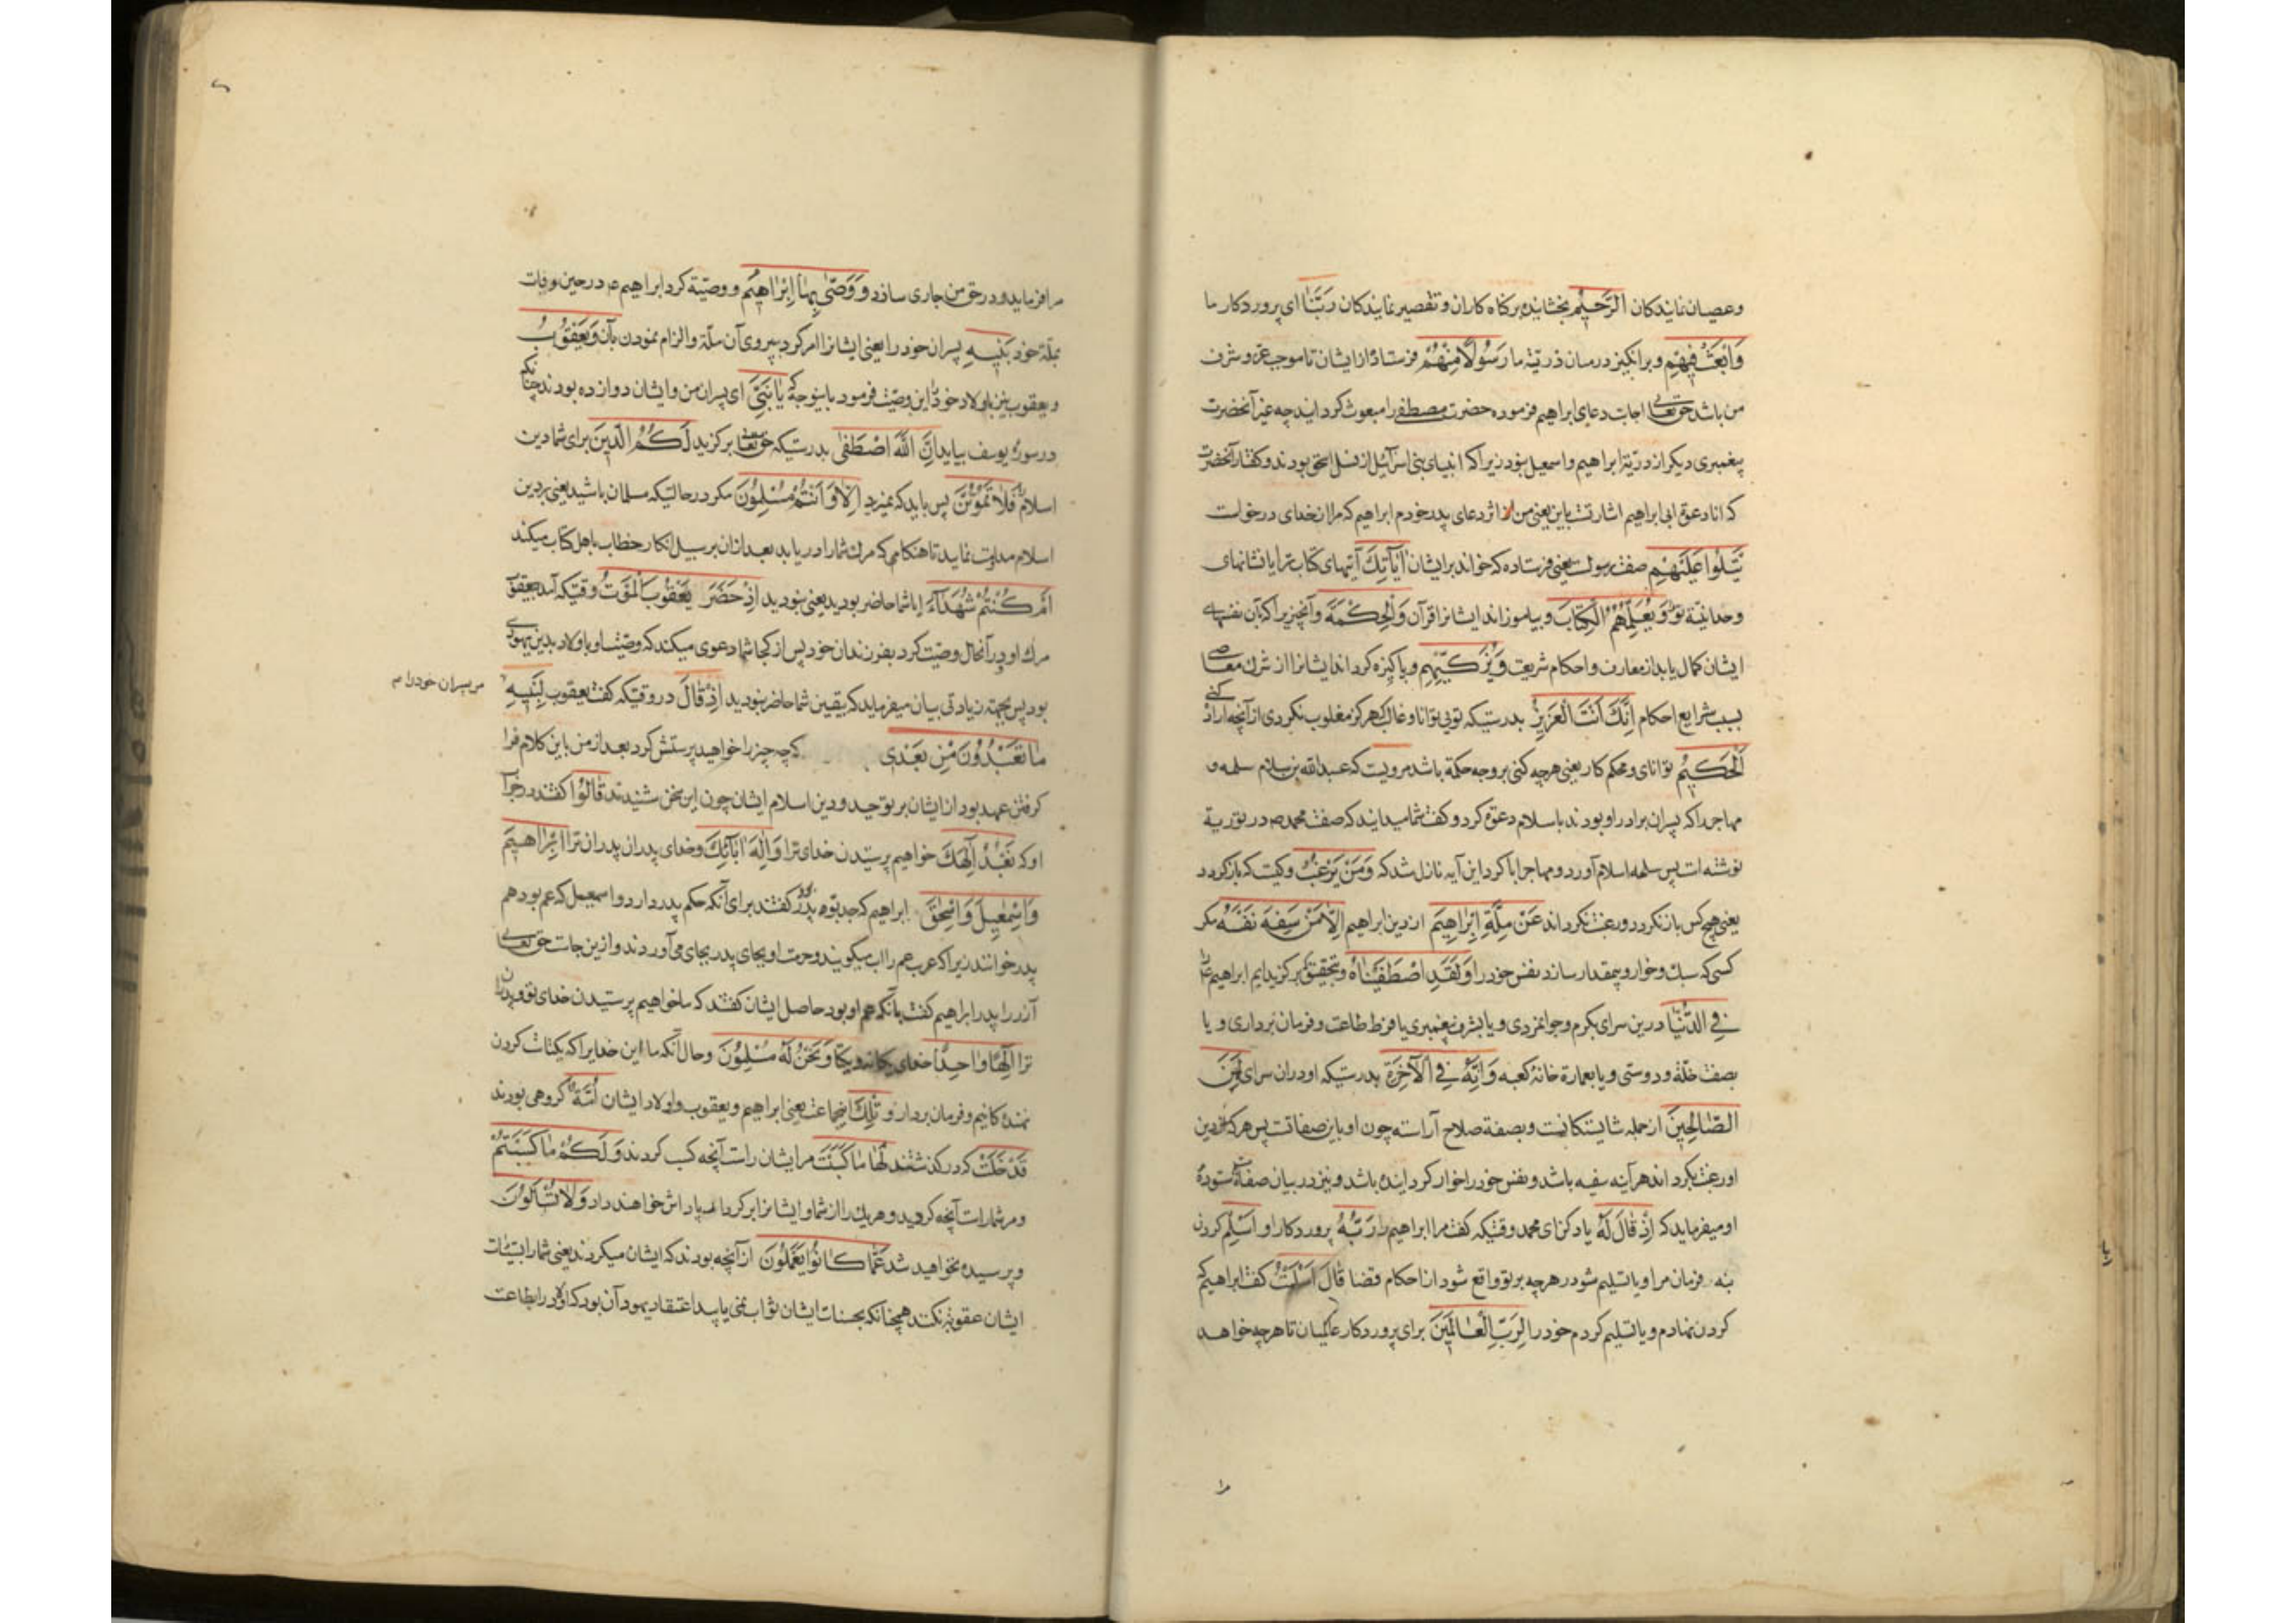 وعصیان نمایندکان الرَّحِیمُ بخشاینده برکناه کاران وتقصیر نمایندکان رَبَّنَا ای پروردکار ما
وَابْعَثْ فِیهِمْ وبرانکیز درمیان ذریّة ما رَسُولًا مِنْهُمْ فرستادهٔ ازایشان تا موجب عزّ وشرف
من باشد حق تعالی اجابت دعای ابراهیم فرموده حضرت مصطفی را مبعوث کردانید چه غیر آنحضرت
پیغمبری دیکر از ذریّة ابراهیم واسمعیل نبود زیراکه انبیای بنی اسرائیل از نسل اسحق بودند وکفتار آنحضرت
که انا دعوة ابی ابراهیم اشارتست باین یعنی من اثر دعای پدر خودم ابراهیم که مرا از خدای درخواست
یَتْلُوا عَلَیْهِمْ صفت رسولست یعنی فرستاده که خواند برایشان اٰیَاتِكَ آیتهای کتاب ترا یا نشانهای
وحدانیّة تو وَیُعَلِّمُهُمُ الْکِتَابَ وبیاموزاند ایشانرا قرآن وَالْحِکْمَةَ وآنچیز یرا که بآن نفسهای
ایشان کمال یابد از معارف واحکام شریعت وَیُزَکِّیهِمْ وپاکیزه کرداند ایشانرا از شرك ومعاصی
بسبب شرایع احکام اِنَّكَ اَنْتَ الْعَزِیزُ بدرستیکه تویی توانا وغالب که هرکز مغلوب نکردی از آنچه اراده کنی
الْحَکِیمُ توانای ومحکم کار یعنی هرچه کنی بروجه حکمة باشد مرویست که عبدالله بن سلام سلمه و
مهاجر را که پسران برادر او بودند باسلام دعوة کرد وکفت شما میدانید که صفت محمد ص در توریة
نوشته است پس سلمه اسلام آورد ومهاجر ابا کرد این آیه نازل شد که وَمَنْ یَرْغَبُ وکیست که بازکردد
یعنی هیچ کس بازنکردد ورغبت نکرداند عَنْ مِلَّةِ اِبْرَاهِیمَ از دین ابراهیم اِلَّا مَنْ سَفِهَ نَفْسَهُ مکر
کسی که سبك وخوار وبیمقدار سازد نفس خود را وَلَقَدِ اصْطَفَیْنَاهُ وبتحقیق که برکزیدایم ابراهیم را
فِی الدُّنْیَا درین سرای بکرم وجوانمردی ویا بشرف پیغمبری یا فرط طاعت وفرمان برداری ویا
بصفت خلّة ودوستی ویا بعمارة خانهٔ کعبه وَاِنَّهُ فِی الْآخِرَةِ بدرستیکه او دران سرای لَمِنَ
الصَّالِحِینَ از جمله شایستکانست وبصفة صلاح آراسته چون او باین صفاتست پس هرکه از دین
او رغبت بکرداند هرآینه سفیه باشد ونفس خود را خوار کردانیده باشد ونیز در بیان صفات ستودهٔ
او میفرماید که اِذْ قَالَ لَهُ یاد کن ای محمد وقتیکه کفت مر ابراهیم را رَبُّهُ پروردکار او اَسْلِمْ کردن
بنه فرمان مرا ویا تسلیم شو در هرچه بر تو واقع شود از احکام قضا قَالَ اَسْلَمْتُ کفت ابراهیم که
کردن نهادم ویا تسلیم کردم خود را لِرَبِّ الْعَالَمِینَ برای پروردکار عالمیان تا هرچه خواهد
مرا فرماید ودر حق من جاری سازد وَوَصّٰی بِهَا اِبْرَاهِیمُ ووصیّة کرد ابراهیم ع در حین وفات
بملّة خود بَنِیهِ پسران خود را یعنی ایشانرا امر کرد بپیروی آن ملّة والزام نمودن بآن وَیَعْقُوبُ
ویعقوب نیز باولاد خود این وصیّت فرمود باینوجه که یَا بَنِیَّ ای پسران من وایشان دوازده بودند چنانکه
در سورهٔ یوسف بیاید اِنَّ اللّٰهَ اصْطَفٰی بدرستیکه حق تعالی برکزید لَکُمُ الدِّینَ برای شما دین
اسلام فَلَا تَمُوتُنَّ پس باید که نمیرید اِلَّا وَاَنْتُمْ مُسْلِمُونَ مکر در حالتیکه مسلمان باشید یعنی بر دین
اسلام مداومت نمایید تا هنکامی که مرك شما را دریابد بعد ازان بر سبیل انکار خطاب باهل کتاب میکند
اَمْ کُنْتُمْ شُهَدَاءَ ایا شما حاضر بودید یعنی نبودید اِذْ حَضَرَ یَعْقُوبَ الْمَوْتُ وقتیکه آمد بیعقوب
مرك او در آنحال وصیّت کرد بفرزندان خود پس از کجا شما دعوی میکنید که وصیّت او باولاد بدین یهودی
بود پس بجهة زیادتی بیان میفرماید که بیقین شما حاضر نبودید اِذْ قَالَ در وقتیکه کفت یعقوب لِبَنِیهِ
مر پسران خود را
مَا تَعْبُدُونَ مِنْ بَعْدِی که چه چیز را خواهید پرستش کرد بعد از من باین کلام فرا
کرفتن عهد بود از ایشان بر توحید ودین اسلام ایشان چون این سخن شنیدند قَالُوا کفتند در جواب
او که نَعْبُدُ اِلٰهَكَ خواهیم پرستیدن خدای ترا وَاِلٰهَ اٰبَائِكَ وخدای پدران پدران ترا اِبْرَاهِیمَ
وَاِسْمٰعِیلَ وَاِسْحٰقَ ابراهیم که جد بوده پدر کفتند برای آنکه حکم پدر دارد واسمعیل که عم بود هم
پدر خوانند زیراکه عرب عم را اب میکویند وحرمت او بجای پدر بجای می آوردند وازین جاست حق تعالی
آزر را پدر ابراهیم کفت بآنکه عم او بود حاصل ایشان کفتند که ما خواهیم پرستیدن خدای تو وپدران
ترا اِلٰهًا وَاحِدًا خدای یکانه ویکتا وَنَحْنُ لَهُ مُسْلِمُونَ وحال آنکه ما این خدایرا که یکتاست کردن
نهندکانیم وفرمان بردار و تِلْكَ اینجماعت یعنی ابراهیم ویعقوب واولاد ایشان اُمَّةٌ کروهی بودند
قَدْ خَلَتْ که درکذشتند لَهَا مَا کَسَبَتْ مر ایشان راست آنچه کسب کردند وَلَکُمْ مَا کَسَبْتُمْ
ومر شماراست آنچه کردید وهریك را از شما وایشانرا بر کردار پاداش خواهند داد وَلَا تُسْئَلُونَ
وپرسیده نخواهید شد عَمَّا کَانُوا یَعْمَلُونَ ازآنچه بودند که ایشان میکردند یعنی شما را بسیّئات
ایشان عقوبة نکنند همچنانکه بحسنات ایشان ثواب نمی یابید اعتقاد یهود آن بود که اولاد را بطاعت